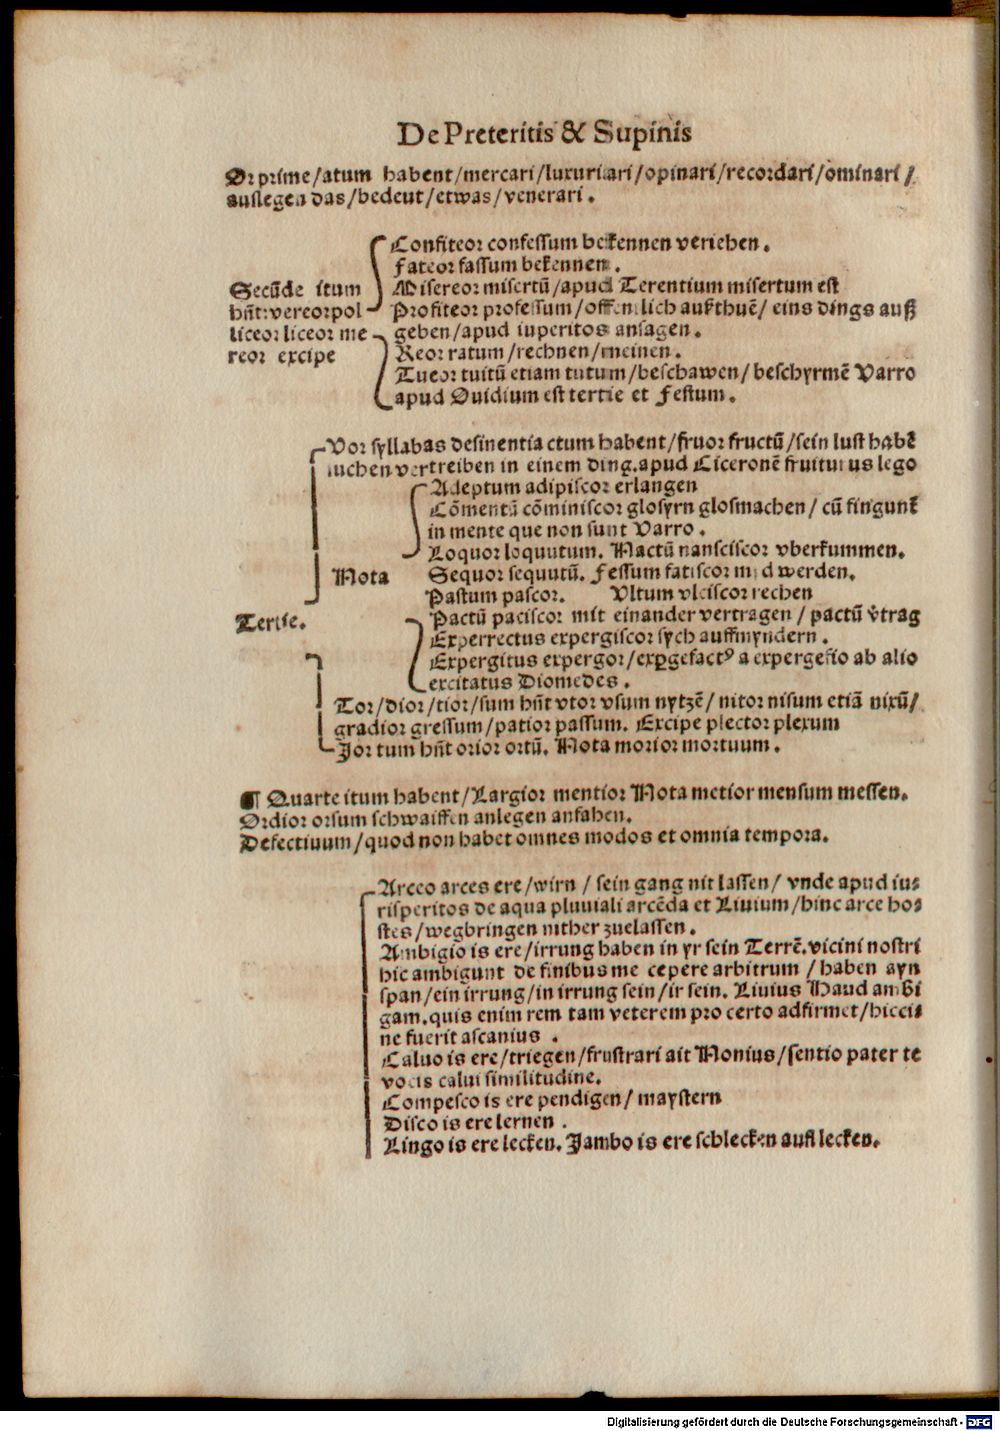 De Preteritis & Supinis
Or prime/atum habent/mercari/luxuriari/opinari/recordari/ominari/
auslegen das/bedeut/etwas/venerari.
Confiteor confessum bekennen veriehen.
Fateor fassum bekennen.
Secūde itum
Misereor misertū/apud Terentium misertum est
hñt:vereor pol
Profiteor professum/offenlich aukthuē/ eins dings auß
liceor liceor me
geben/apud iuperitos ansagen.
reor excipe
Reor ratum/rechnen/meinen.
Tueor tuitū etiam tutum/beschawen/beschyrmē Varro
apud Ouidium est tertie et Festum.
Vor syllabas desinentia ctum habent/fruor fructū/sein lust habē
suchen vertreiben in einem ding.apud Ciceronē fruiturus lego
Adeptum adipiscor erlangen
Cōmentū cōminiscor glosyrn glosmachen/ cū fingunt
in mente que non sunt Varro.
Loquor loquutum. Nactū nansciscor vberkummen.
Nota
Sequor sequutū. Fessum fatiscor mid werden.
Pastum pascor. Vltum vlciscor rechen
Tertie.
Pactū paciscor mit einander vertragen/ pactū v̄trag
Experrectus expergiscor sych auffmyndern.
Expergitus expergor/exp̲gefactꝰ a expergefio ab alio
excitatus Diomedes.
Tor/dior/tior/sum hñt vtor vsum nytzē/ nitor nisum etiā nixū/
gradior gressum/patior passum. Excipe plector plexum
Jor tum hñt orior ortū. Nota morior mortuum.
¶ Quarte itum habent/Largior mentior Nota metior mensum messen.
Ordior orsum schwaiffen anlegen anfahen.
Defectiuum/quod non habet omnes modos et omnia tempora.
Arceo arces ere/wirn/ sein gang nit lassen/ vnde apud iu⸗
risperitos de aqua pluuiali arcēda et Liuium/hinc arce ho⸗
stes/wegbringen nither zuelassen.
Ambigio is ere/irrung haben in yr sein Terrē.vicini nostri
hic ambigunt de finibus me cepere arbitrum/haben ayn
span/ein irrung/in irrung sein/ir sein. Liuius Haud ambi
gam.quis enim rem tam veterem pro certo adfirmet/hiccí⸗
ne fuerit ascanius.
Caluo is ere/triegen/frustrari ait Nonius/sentio pater te
vocis calui similitudine.
Compesco is ere pendigen/ maystern
Disco is ere lernen.
Lingo is ere lecken. Jambo is ere schlecken auflecken.
Digitalisierung gefördert durch die Deutsche Forschungsgemeinschaft - DFG